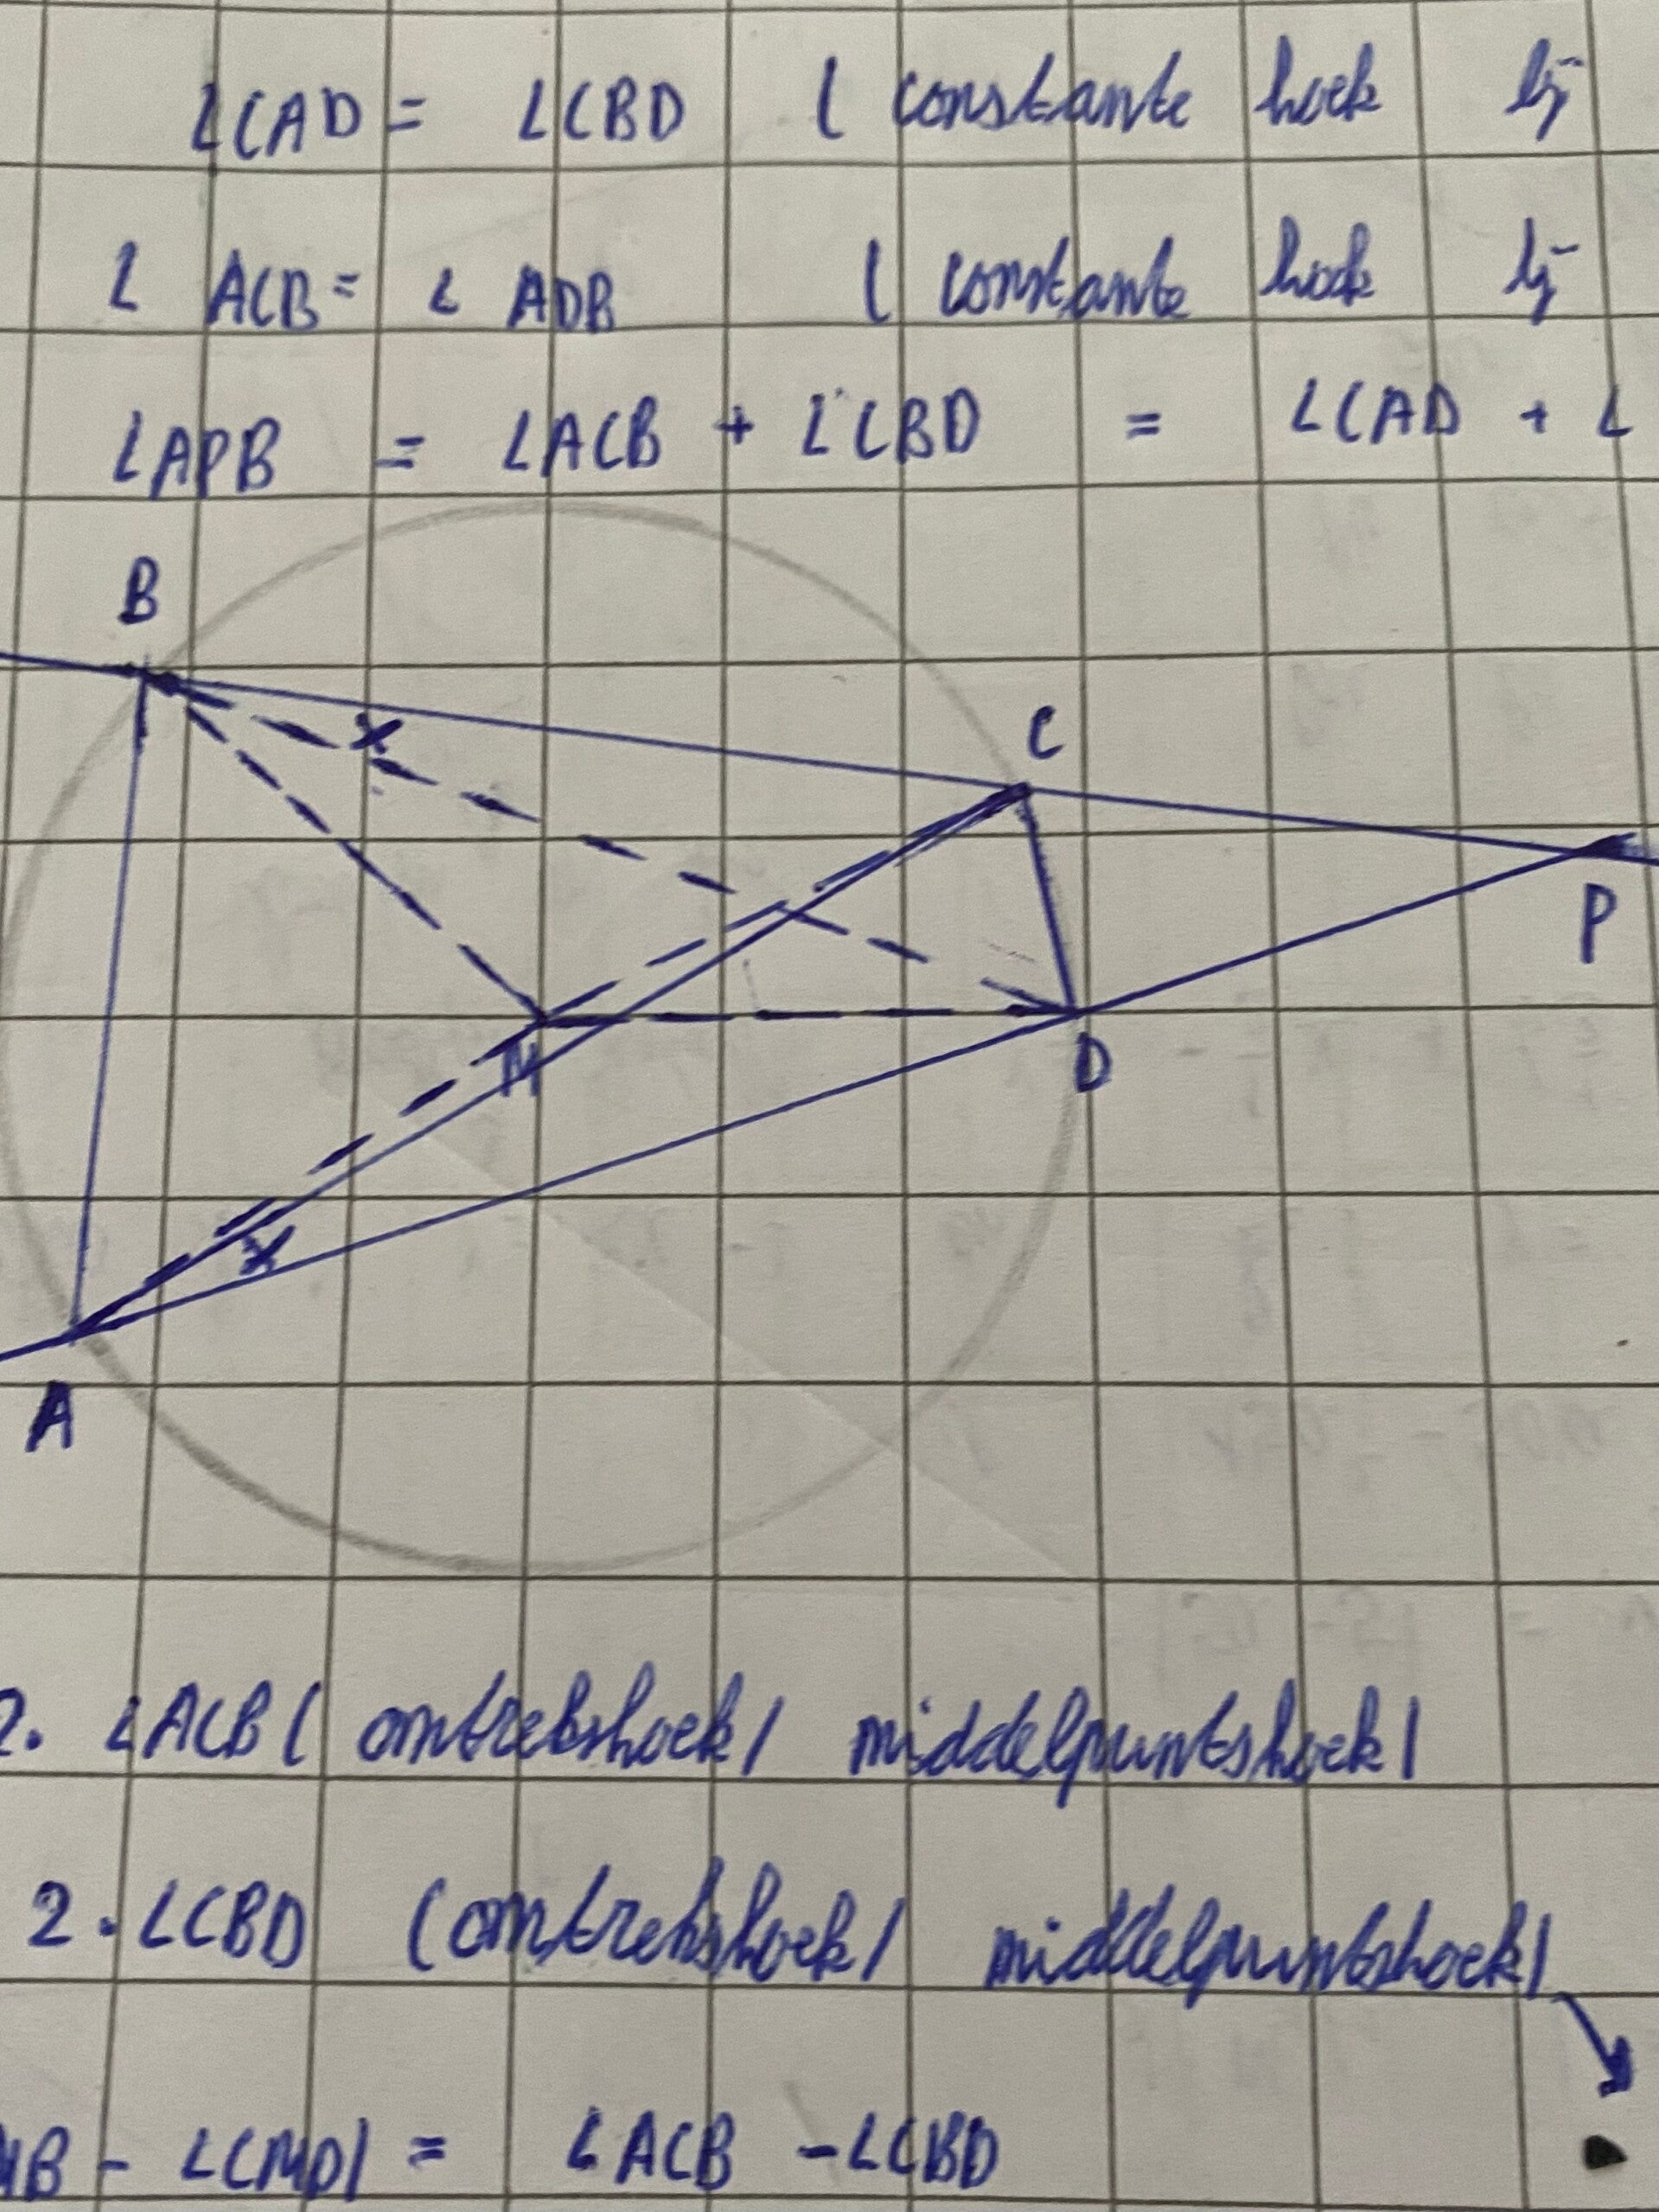 ∠CAD = ∠CBD ( constante hoek bij
∠ ACB = ∠ ADB ( constante hoek bij
∠APB = ∠ACB + ∠CBD = ∠CAD + ∠
B
x
C
P
M
D
x
A
2. ∠ACB ( omtrekshoek / middelpuntshoek )
2 . ∠CBD ( omtrekshoek / middelpuntshoek )
MB - ∠CMD ) = ∠ACB - ∠CBD